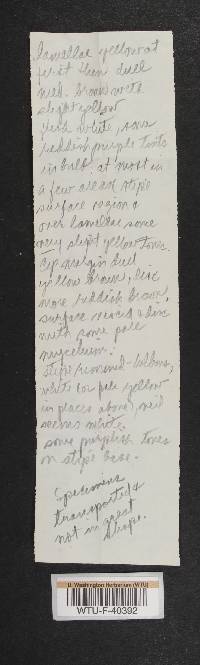 lamellae yellow at
first then dull
med. brown with
slight yellow
flesh white, some
reddish purple tints
in bulb at most in
a few areas stipe
surface region &
over lamellae some
very slight yellow tones.
Cap margin dull
yellow brown, disc
more reddish brown,
surface viscid & disc
with some pale
mycelium.
stipe rimmed-bulbous,
white (or pale yellow
in places above), veil
seems white.
some purplish tones
on stipe base.
Specimens
transported &
not in great
shape.
U. Washington Herbarium (WTU)
WTU-F-40392